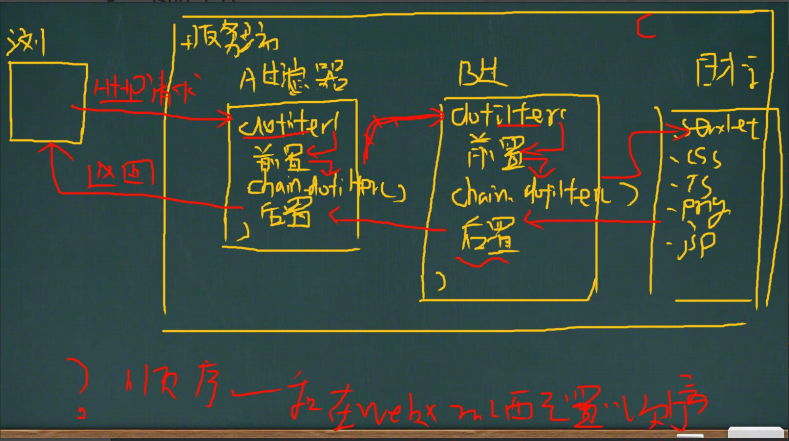 服务端
A过滤器
HTTP请求
dofilter(
前置
chain.dofilter()
后置
)
返回
dofilter(
前置
chain.dofilter()
后置
)
C
.servlet
.css
.JS
.png
.jsp
顺序一和在web xml配置